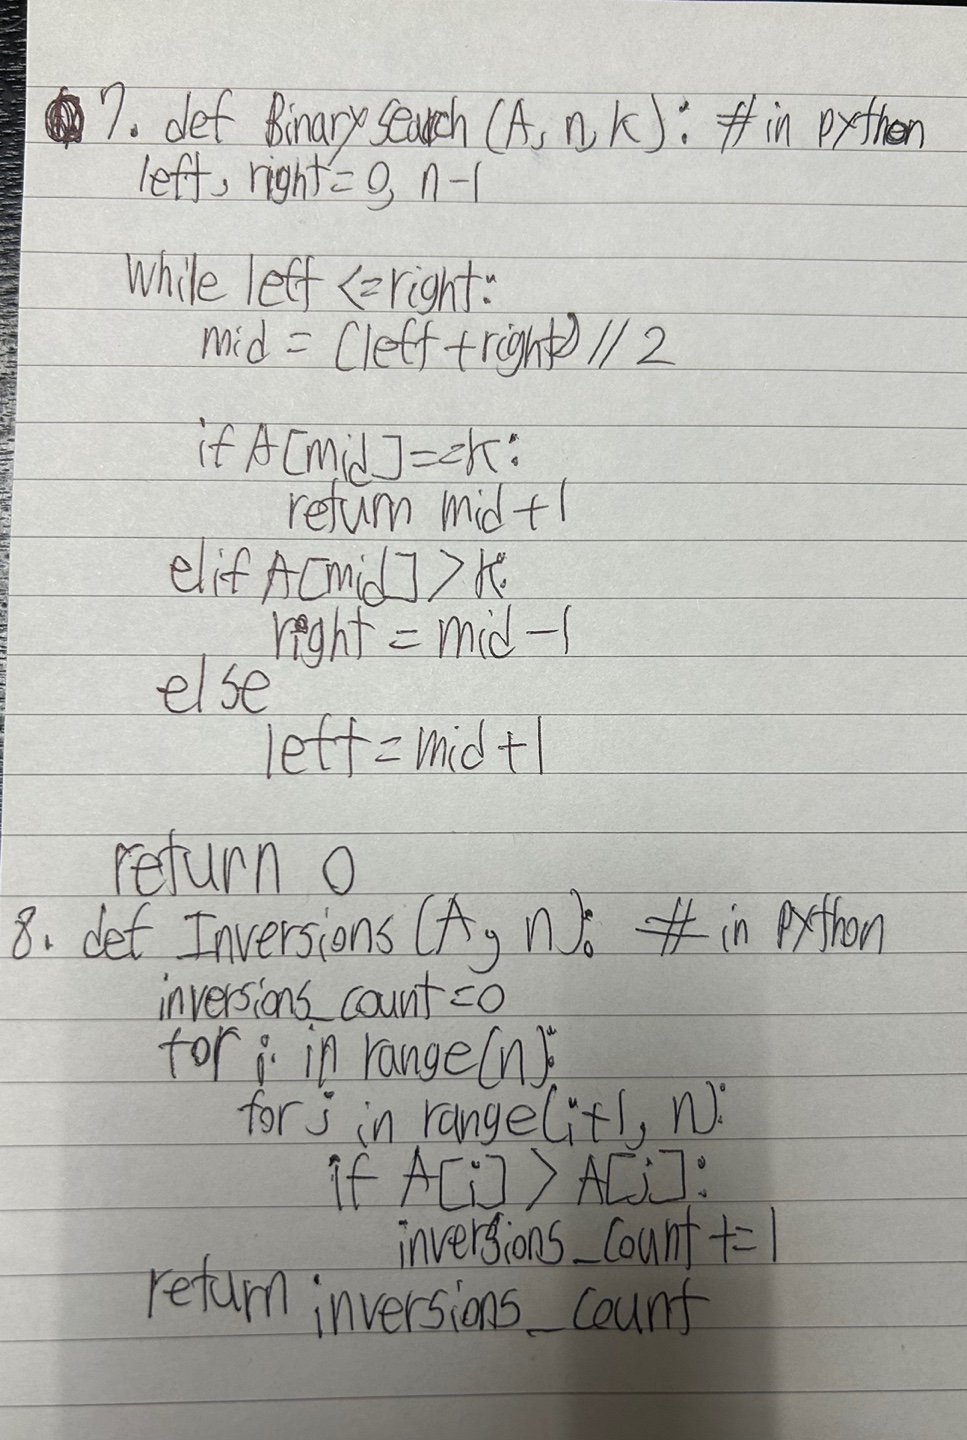 7. def BinarySearch (A, n, k): # in python
left, right = 0, n-1
While left <= right:
mid = (left + right) // 2
if A[mid] == k:
return mid + 1
elif A[mid] > k:
right = mid - 1
else
left = mid + 1
return 0
8. def Inversions (A, n): # in python
inversions_count = 0
for i in range(n):
for j in range(i+1, n):
if A[i] > A[j]:
inversions_count += 1
return inversions_count